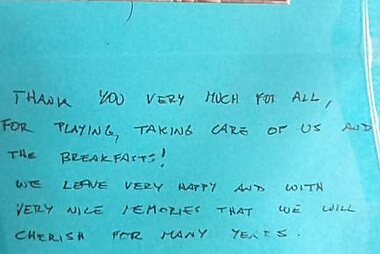 THANK YOU VERY MUCH FOR ALL,
FOR PLAYING, TAKING CARE OF US AND
THE BREAKFASTS!
WE LEAVE VERY HAPPY AND WITH
VERY NICE MEMORIES THAT WE WILL
CHERISH FOR MANY YEARS.